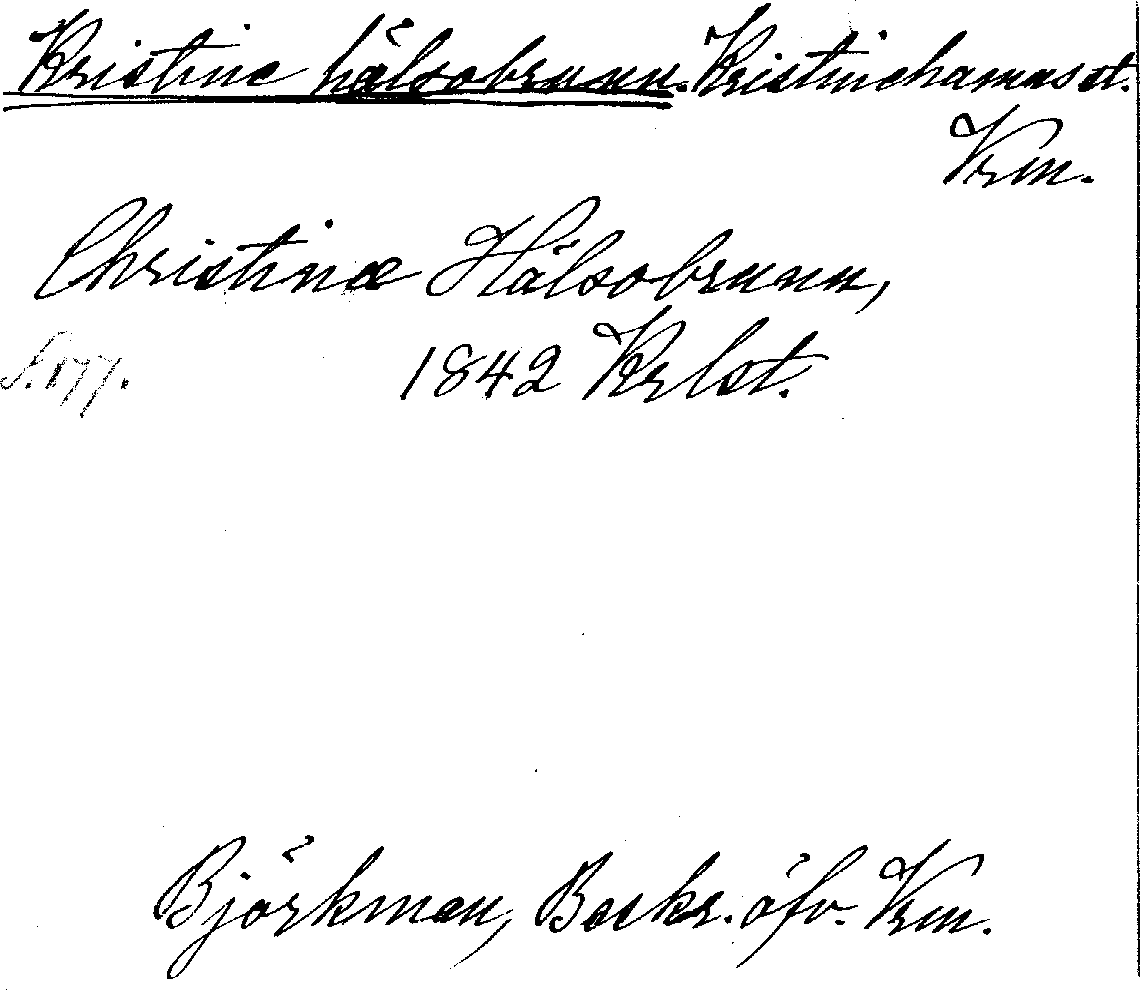 Kristinæ hälsobrunn. Kristinehamns st.
Vrm.
Christinæ Hälsobrunn,
S. 177. 1842 Krlst.
Björkman, Beskr. öfv. Vrm.